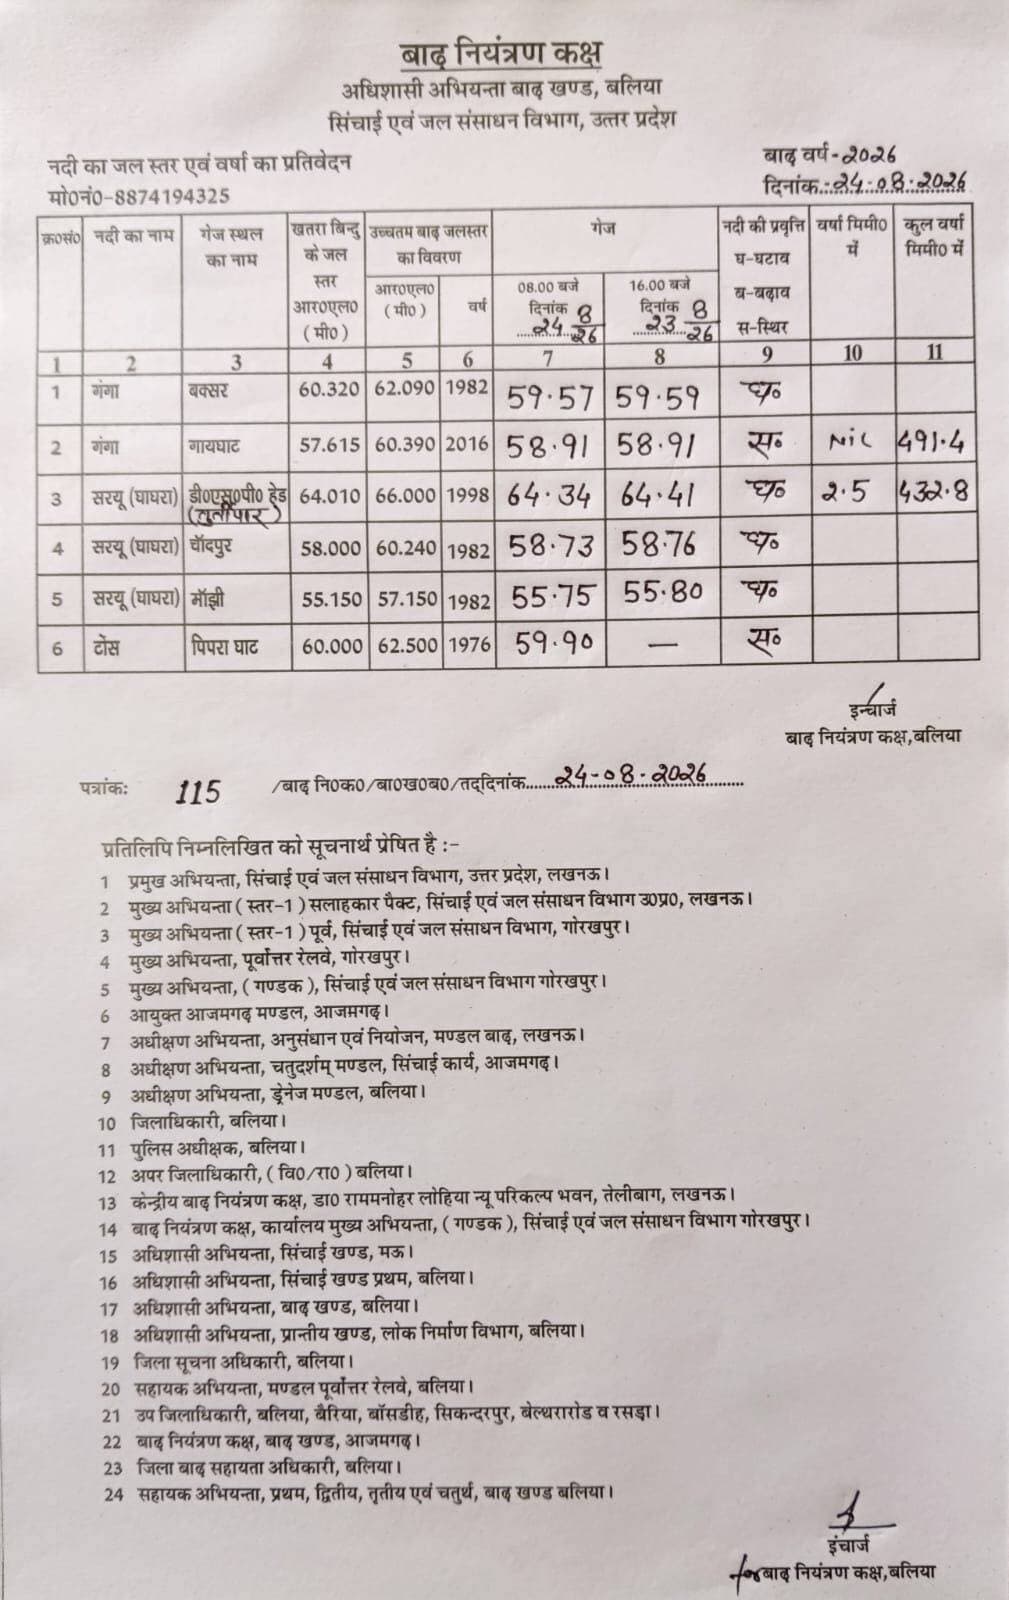 बाढ़ नियंत्रण कक्ष
अधिशासी अभियन्ता बाढ़ खण्ड, बलिया
सिंचाई एवं जल संसाधन विभाग, उत्तर प्रदेश
नदी का जल स्तर एवं वर्षा का प्रतिवेदन
बाढ़ वर्ष-2026
मो0नं0-8874194325
दिनांक:-24-08-2026
क्र0सं0 नदी का नाम गेज स्थल का नाम खतरा बिन्दु के जल स्तर आर0एल0 (मी0) उच्चतम बाढ़ जलस्तर का विवरण गेज नदी की प्रवृत्ति घ-घटाव ब-बढ़ाव स-स्थिर वर्षा मिमी0 में कुल वर्षा मिमी0 में
आर0एल0 (मी0) वर्ष 08.00 बजे दिनांक 24 8/26 16.00 बजे दिनांक 23 8/26
1 2 3 4 5 6 7 8 9 10 11
1 गंगा बक्सर 60.320 62.090 1982 59.57 59.59 घ०
2 गंगा गायघाट 57.615 60.390 2016 58.91 58.91 स० NiL 491.4
3 सरयू (घाघरा) डी0एस0पी0 हेड (तुर्तीपार) 64.010 66.000 1998 64.34 64.41 घ० 2.5 432.8
4 सरयू (घाघरा) चॉदपुर 58.000 60.240 1982 58.73 58.76 घ०
5 सरयू (घाघरा) मॉझी 55.150 57.150 1982 55.75 55.80 घ०
6 टोंस पिपरा घाट 60.000 62.500 1976 59.90 — स०
इन्चार्ज
बाढ़ नियंत्रण कक्ष,बलिया
पत्रांक: 115 /बाढ़ नि0क0/बा0ख0ब0/तद्दिनांक....24-08-2026....
प्रतिलिपि निम्नलिखित को सूचनार्थ प्रेषित है :-
1 प्रमुख अभियन्ता, सिंचाई एवं जल संसाधन विभाग, उत्तर प्रदेश, लखनऊ।
2 मुख्य अभियन्ता ( स्तर-1 ) सलाहकार पैक्ट, सिंचाई एवं जल संसाधन विभाग उ0प्र0, लखनऊ।
3 मुख्य अभियन्ता ( स्तर-1 ) पूर्व, सिंचाई एवं जल संसाधन विभाग, गोरखपुर।
4 मुख्य अभियन्ता, पूर्वोत्तर रेलवे, गोरखपुर।
5 मुख्य अभियन्ता, ( गण्डक ), सिंचाई एवं जल संसाधन विभाग गोरखपुर।
6 आयुक्त आजमगढ़ मण्डल, आजमगढ़।
7 अधीक्षण अभियन्ता, अनुसंधान एवं नियोजन, मण्डल बाढ़, लखनऊ।
8 अधीक्षण अभियन्ता, चतुदर्शम् मण्डल, सिंचाई कार्य, आजमगढ़।
9 अधीक्षण अभियन्ता, ड्रेनेज मण्डल, बलिया।
10 जिलाधिकारी, बलिया।
11 पुलिस अधीक्षक, बलिया।
12 अपर जिलाधिकारी, ( वि0/रा0 ) बलिया।
13 केन्द्रीय बाढ़ नियंत्रण कक्ष, डा0 राममनोहर लोहिया न्यू परिकल्प भवन, तेलीबाग, लखनऊ।
14 बाढ़ नियंत्रण कक्ष, कार्यालय मुख्य अभियन्ता, ( गण्डक ), सिंचाई एवं जल संसाधन विभाग गोरखपुर।
15 अधिशासी अभियन्ता, सिंचाई खण्ड, मऊ।
16 अधिशासी अभियन्ता, सिंचाई खण्ड प्रथम, बलिया।
17 अधिशासी अभियन्ता, बाढ़ खण्ड, बलिया।
18 अधिशासी अभियन्ता, प्रान्तीय खण्ड, लोक निर्माण विभाग, बलिया।
19 जिला सूचना अधिकारी, बलिया।
20 सहायक अभियन्ता, मण्डल पूर्वोत्तर रेलवे, बलिया।
21 उप जिलाधिकारी, बलिया, बैरिया, बॉसडीह, सिकन्दरपुर, बेल्थरारोड व रसड़ा।
22 बाढ़ नियंत्रण कक्ष, बाढ़ खण्ड, आजमगढ़।
23 जिला बाढ़ सहायता अधिकारी, बलिया।
24 सहायक अभियन्ता, प्रथम, द्वितीय, तृतीय एवं चतुर्थ, बाढ़ खण्ड बलिया।
इंचार्ज
for बाढ़ नियंत्रण कक्ष,बलिया